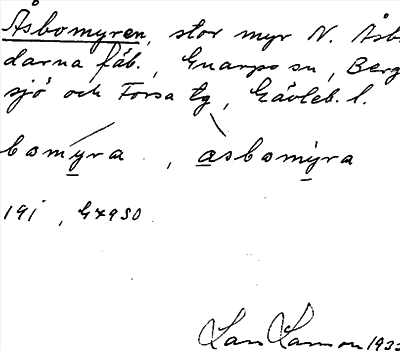 Åsbomyren, stor myr N. Åsb
darna fäb., Gnarps sn, Berg
sjö och Forsa tg, Gävleb. l.
bomyra , asbomyra
191 , G7950
Lars 1933